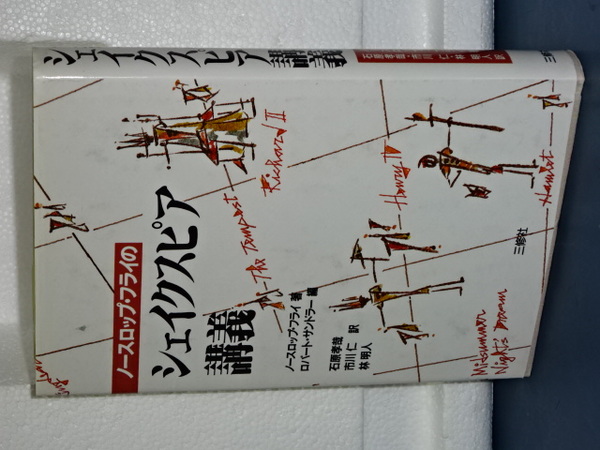 シェイクスピア講義
石原孝哉・市川 仁・林 明人 訳
ノースロップ・フライの
シェイクスピア
講義
ノースロップ・フライ 著
ロバート・サンドラー 編
石原孝哉
市川 仁 訳
林 明人
三修社
Richard II
The Tempest
Henry IV
Hamlet
Mitsummer
Night's Dream